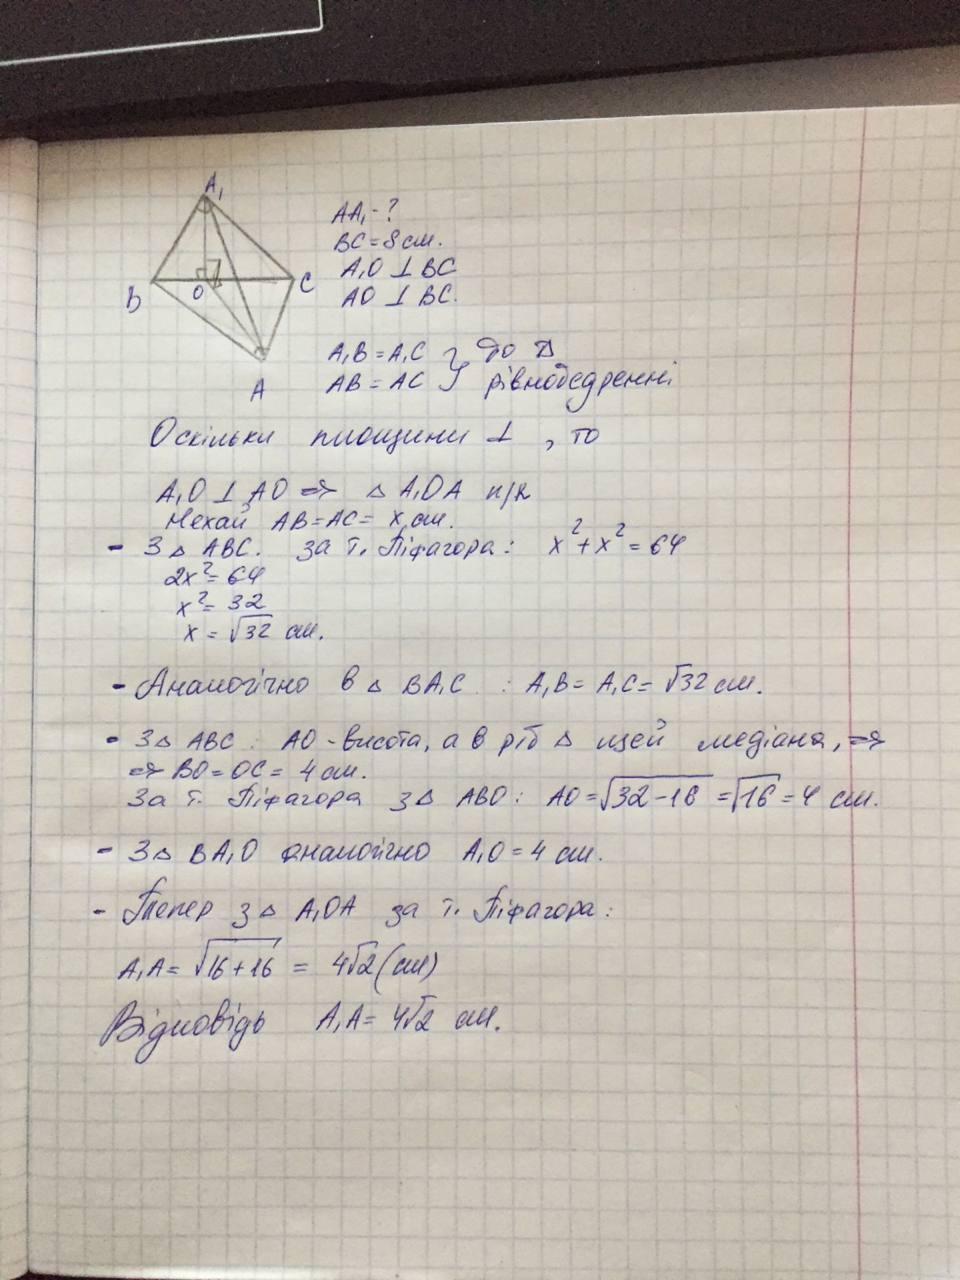 A₁
B
O
C
A
AA₁ - ?
BC = 8 см.
A₁O ⊥ BC
AO ⊥ BC.
A₁B = A₁C } бо Δ
AB = AC } рівнобедренні
Оскільки площини ⊥ , то
A₁O ⊥ AO => Δ A₁OA п/к
Нехай AB = AC = x см.
- З Δ ABC. за т. Піфагора: x² + x² = 64
2x² = 64
x² = 32
x = √32 см.
- Аналогічно в Δ BA₁C : A₁B = A₁C = √32 см.
- З Δ ABC : AO - висота, а в р/б Δ і цей медіана, =>
=> BO = OC = 4 см.
За т. Піфагора з Δ ABO: AO = √32-16 = √16 = 4 см.
- З Δ BA₁O аналогічно A₁O = 4 см.
- Тепер з Δ A₁OA за т. Піфагора:
A₁A = √16+16 = 4√2 (см)
Відповідь A₁A = 4√2 см.